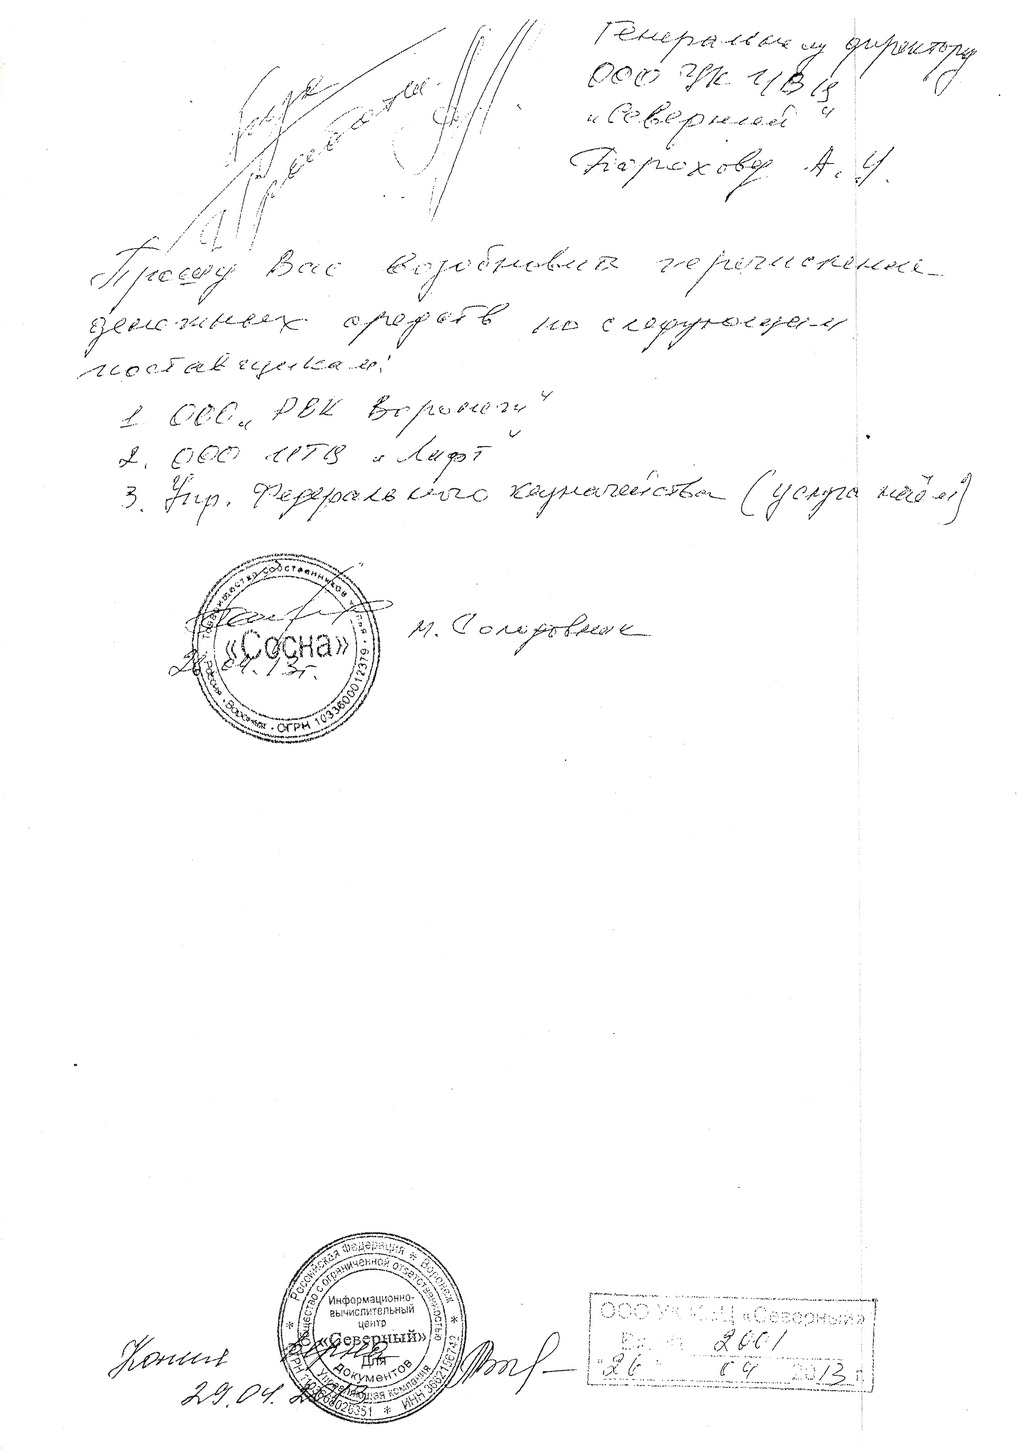 Генеральному директору
ООО УК ИВЦ
„Северный“
Порохову А. И.
Прошу Вас возобновить перечисление
денежных средств по следующим
поставщикам:
1 ООО „РВК Воронеж“
2. ООО ИТЦ „Лифт“
3. Упр. Федерального казначейства (услуга найм)
Товарищество собственников жилья
«Сосна»
Россия • Воронеж • ОГРН 1033600012379
М. Солодовник
26.04.13г.
Российская Федерация * Воронеж *
Общество с ограниченной ответственностью
Информационно-
вычислительный
центр
«Северный»
Для
документов
Управляющая компания
ИНН 3662156742
Копия верна
29.04.2013
ООО УК ИВЦ «Северный»
Вх. № 2001
"26" 04 2013 г.